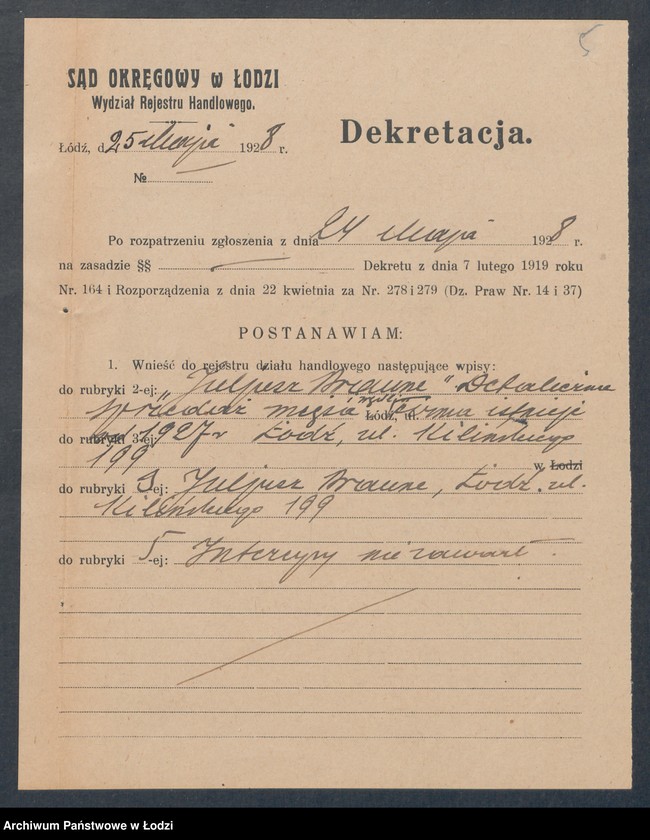 5
SĄD OKRĘGOWY w ŁODZI
Wydział Rejestru Handlowego.
Dekretacja.
Łódź, d. 25 Maja 1928 r.
№
Po rozpatrzeniu zgłoszenia z dnia 24 Maja 1928 r.
na zasadzie §§ Dekretu z dnia 7 lutego 1919 roku
Nr. 164 i Rozporządzenia z dnia 22 kwietnia za Nr. 278 i 279 (Dz. Praw Nr. 14 i 37)
POSTANAWIAM:
1. Wnieść do rejestru działu handlowego następujące wpisy:
do rubryki 2-ej: „Juljusz Braune" Detaliczna
sprzedaż mięsa i wędlin Łódź, ul. Firma istnieje
do rubryki 3-ej: od 1927 r Łódź, ul. Kilińskiego
199 w Łodzi
do rubryki 3-ej: Juljusz Braune, Łódź, ul.
Kilińskiego 199
do rubryki 5-ej: Intercyzy nie zawarł.
Archiwum Państwowe w Łodzi